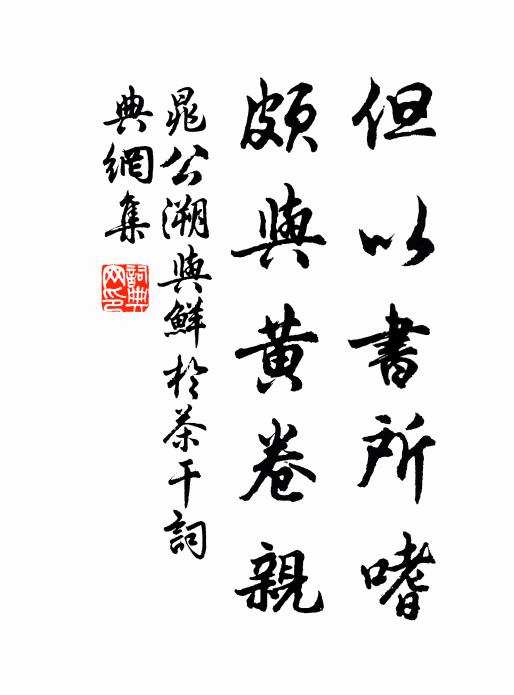 但以書所嗜
頗與黃卷親
晁公溯與鮮於茶干詞
典網集
詞典網印